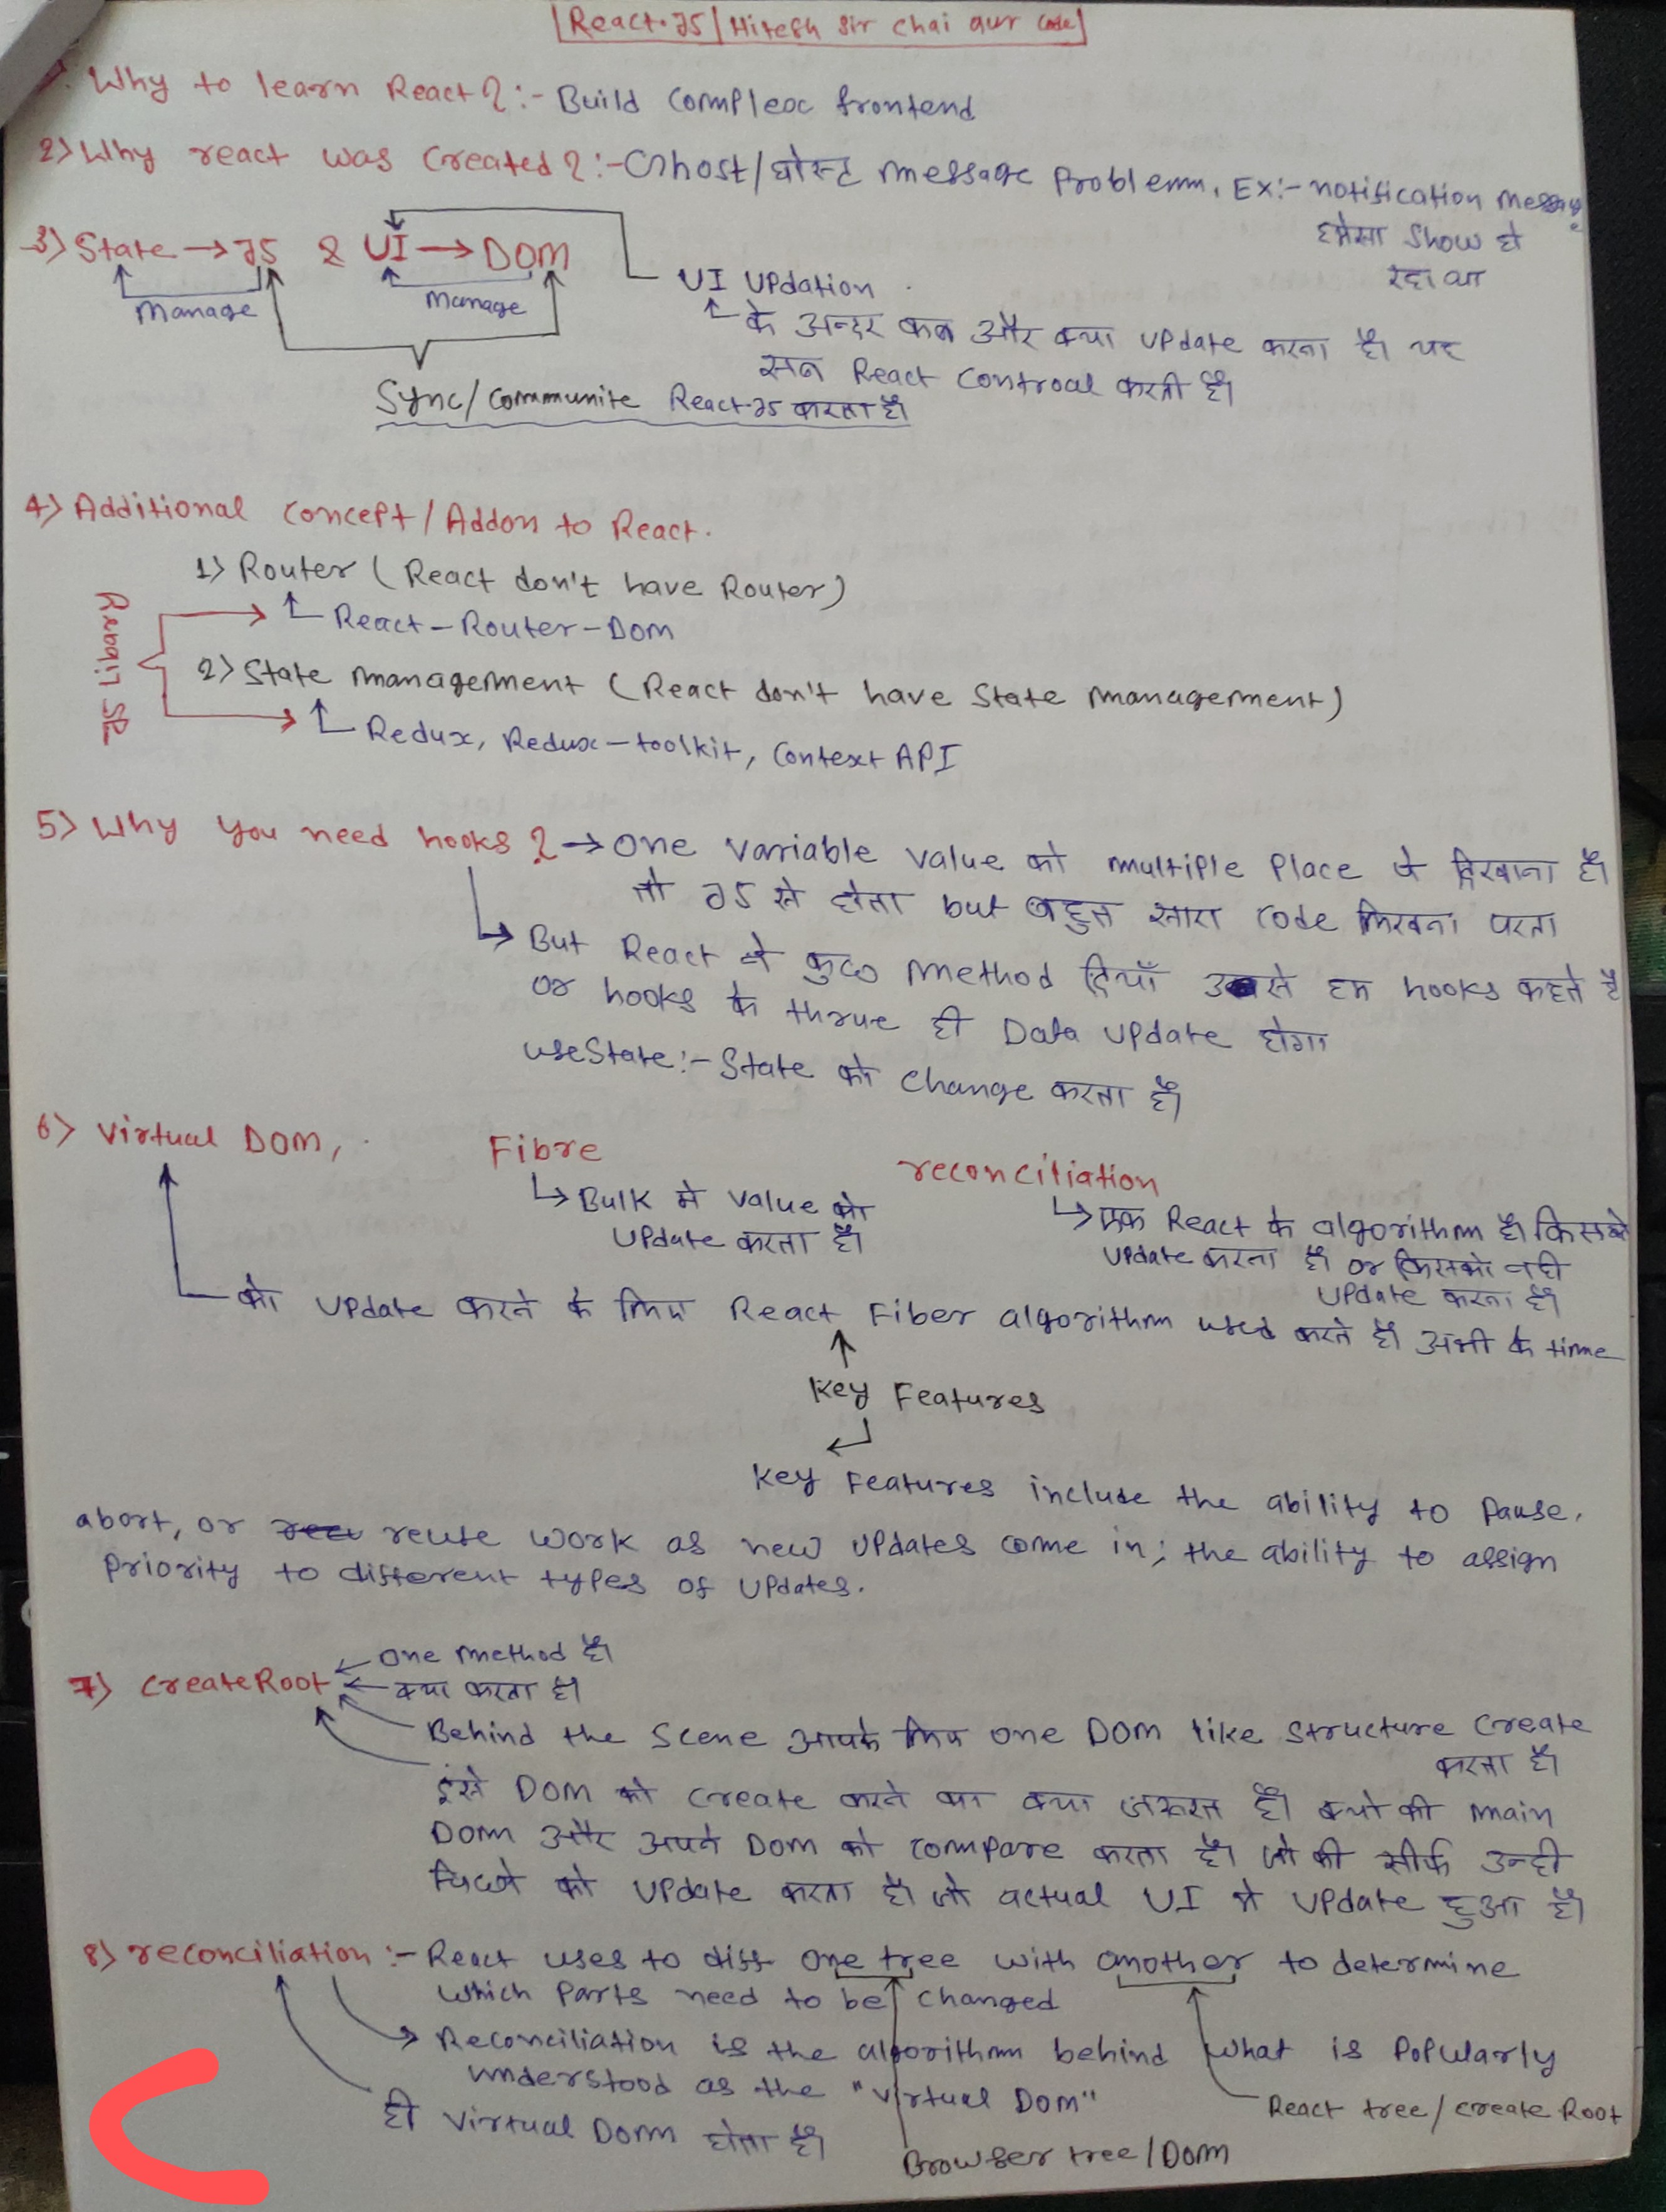 React.JS | Hitesh Sir Chai aur Code
Why to learn React ? :- Build Complex frontend
2) Why react was Created ? :- Ghost/घोस्ट message Problemm, Ex:- notification message
हमेसा Show हो
रहा था
3) State → JS & UI → DOM
Manage
Manage
UI Updation
के अन्दर कब और क्या update करना है। यह
सब React Controal करती है।
Sync/Communite React.JS करता है।
4) Additional Concept / Addon to React.
1) Router ( React don't have Router )
React-Router-Dom
2) State management ( React don't have State management )
Redux, Redux-toolkit, Context API
5) Why you need hooks ? → One Variable value को multiple Place पे दिखाना है।
तो JS से होता but बहुत सारा code लिखना परता
But React ने कुछ method दियाँ उसे हम hooks कहते है
or hooks के thrue ही Data update होगा
useState:- State को Change करता है।
6) Virtual DOM, Fibre reconciliation
Bulk मे value को
update करता है।
एक React के algorithm है। किसको
update करना है। or किसको नही
update करना है।
को update करने के लिए React Fiber algorithm used करते है। अभी के time
Key Features
Key Features include the ability to Pause,
abort, or reuse work as new updates come in; the ability to assign
Priority to different types of updates.
7) CreateRoot
One method है।
क्या करता है।
Behind the Scene आपके लिए one DOM like Structure Create
करता है।
इसे DOM को create करने का क्या जरूरत है। क्यो की main
DOM और अपने DOM को compare करता है। जो की सीर्फ उन्ही
चिजो को update करता है। जो actual UI मे update हुआ है।
8) reconciliation :- React uses to diff one tree with another to determine
which Parts need to be changed
Reconciliation is the algorithm behind what is Popularly
understood as the "virtual Dom"
React tree / create Root
ही Virtual Dom होता है।
Browser tree / Dom